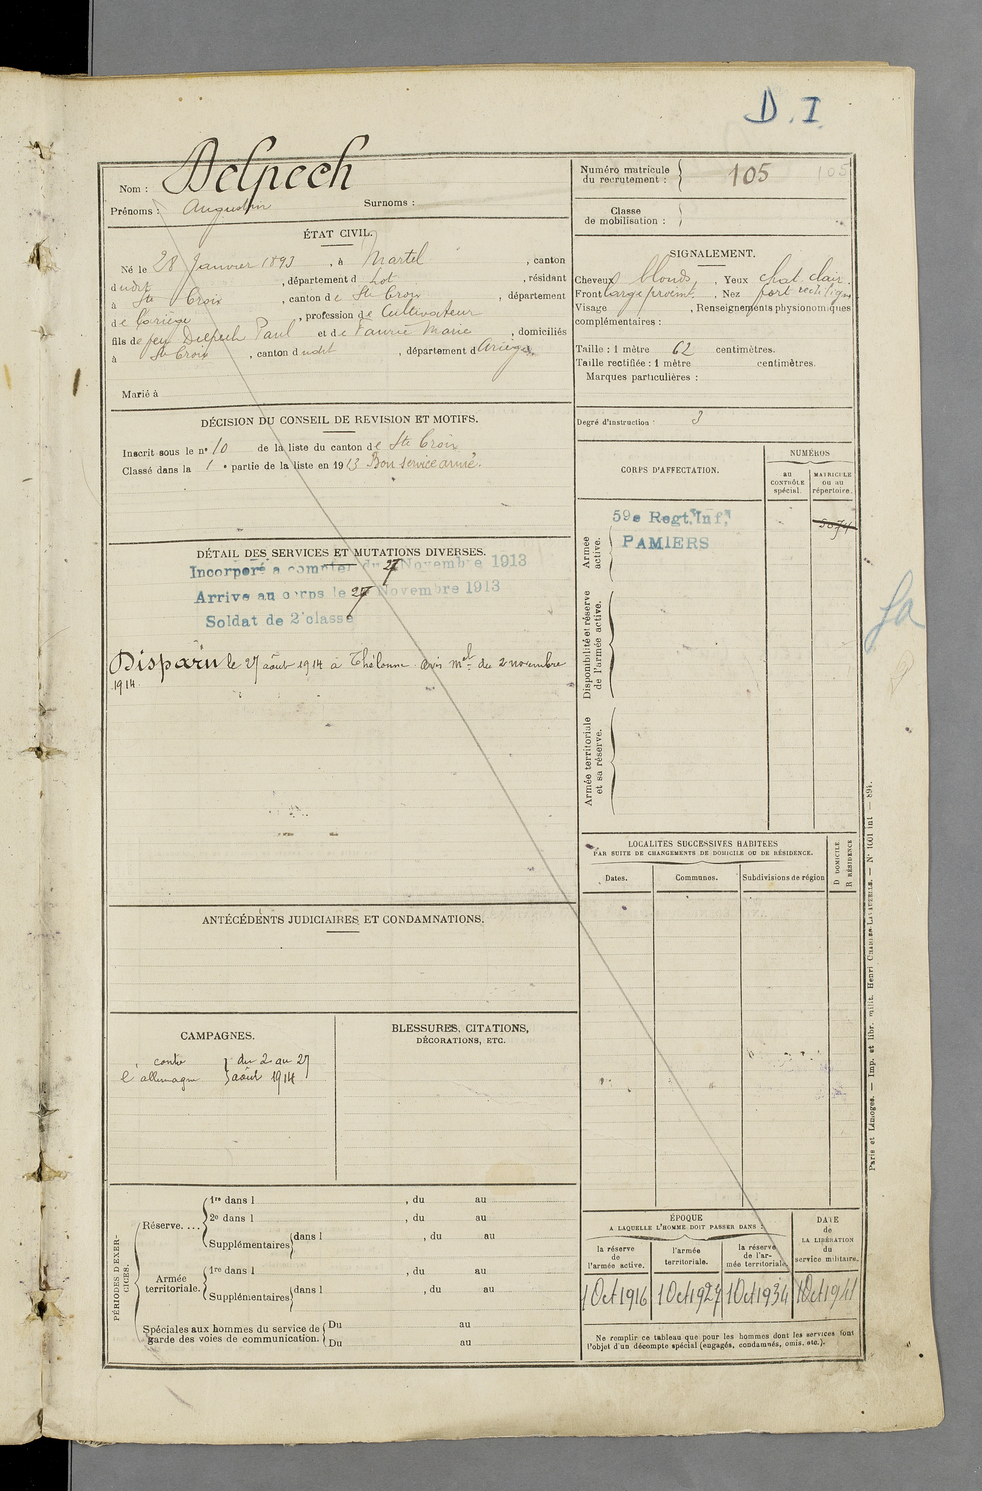 D. I.
Nom : Delpech
Prénoms : Augustin Surnoms :
Numéro matricule du recrutement : 105 105
Classe de mobilisation :
ÉTAT CIVIL.
Né le 28 Janvier 1893, à Martel, canton
dudit, département d Lot, résidant
à Ste Croix, canton de Ste Croix, département
de l'ariège, profession de Cultivateur
fils de feu Delpech Paul et de Faurie Marie, domiciliés
à Ste Croix, canton dudit, département d Ariège
Marié à
SIGNALEMENT.
Cheveux blonds, Yeux chat. clair.
Front large proémt., Nez fort rectiligne
Visage , Renseignements physionomiques
complémentaires :
Taille : 1 mètre 62 centimètres.
Taille rectifiée : 1 mètre centimètres.
Marques particulières :
Degré d'instruction : 3
DÉCISION DU CONSEIL DE REVISION ET MOTIFS.
Inscrit sous le n° 10 de la liste du canton de Ste Croix
Classé dans la 1e partie de la liste en 1913 Bon service armé.
CORPS D'AFFECTATION.
NUMÉROS
au CONTRÔLE spécial.
MATRICULE ou au répertoire.
Armée active.
59e Regt. Inf.
PAMIERS
Disponibilité et réserve de l'armée active.
Armée territoriale et sa réserve.
DÉTAIL DES SERVICES ET MUTATIONS DIVERSES.
Incorporé a compter du 27 Novembre 1913
Arrivé au corps le 27 Novembre 1913
Soldat de 2e classe
Disparu le 27 août 1914 à Thélonne. avis mel du 2 novembre
1914
LOCALITÉS SUCCESSIVES HABITÉES
PAR SUITE DE CHANGEMENTS DE DOMICILE OU DE RÉSIDENCE.
Dates. Communes. Subdivisions de région
D DOMICILE.
R RÉSIDENCE
ANTÉCÉDENTS JUDICIAIRES ET CONDAMNATIONS.
CAMPAGNES.
contre l'allemagne } du 2 au 27 août 1914
BLESSURES, CITATIONS,
DÉCORATIONS, ETC.
PÉRIODES D'EXERCICES.
Réserve....
1re dans l , du au
2e dans l , du au
Supplémentaires dans l , du au
Armée territoriale.
1re dans l , du au
Supplémentaires dans l , du au
Spéciales aux hommes du service de garde des voies de communication.
Du au
Du au
ÉPOQUE
A LAQUELLE L'HOMME DOIT PASSER DANS :
la réserve de l'armée active.
l'armée territoriale.
la réserve de l'armée territoriale.
DATE de LA LIBÉRATION du service militaire.
1 Oct 1916 1 Oct 1927 1 Oct 1934 1 Oct 1941
Ne remplir ce tableau que pour les hommes dont les services font
l'objet d'un décompte spécial (engagés, condamnés, omis, etc.).